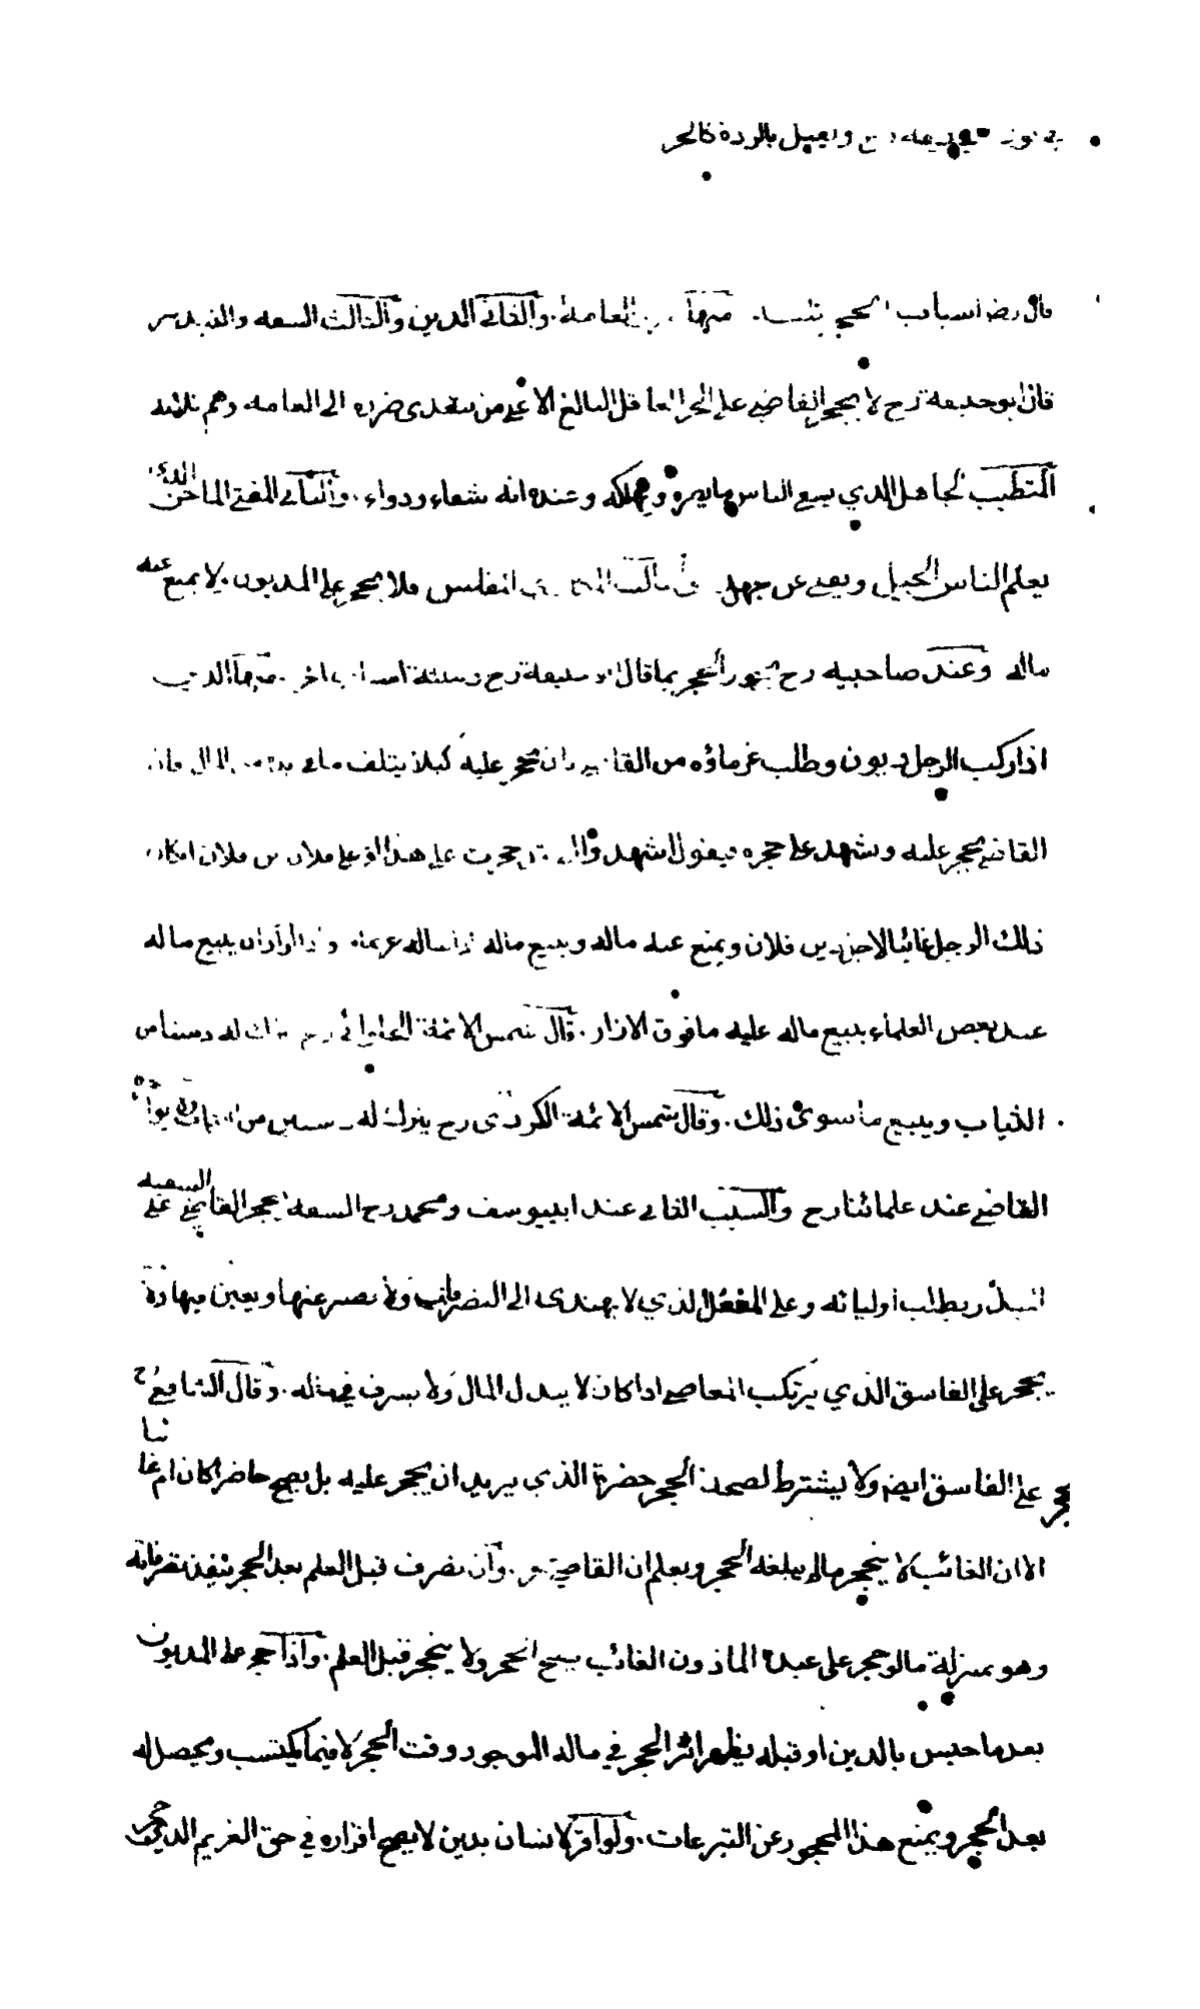 ويعمل بالردة فالحر
قال رضـ اسباب الحجر ثلثة منها العامة . والثاني الدين والثالث السفه والتبذير
قال ابو حنيفة رح لا يحجر القاضي على الحر العاقل البالغ الا على من يتعدى ضرره الى العامه وهم ثلثه
المتطبب الجاهل الذي يسع الناس ما يضره ويهلكه وعنده انه شفاء ودواء . والثاني المفتي الماجن الذي
يعلم الناس الحيل ويفتي عن جهل والثالث المكاري المفلس ولا يحجر على المديون . لا يمنع عنه
ماله وعند صاحبيه رح يجوز الحجر بما قال ابو حنيفة رح وبثلثة اسباب اخر . منها الدين
اذا ركب الرجل ديون وطلب غرماؤه من القاضي ان يحجر عليه كيلا يتلف ما في يده من المال فان
القاضي يحجر عليه ويشهد على حجره فيقول اشهدوا اني قد حجرت على هذا او على فلان بن فلان ان كان
ذلك الرجل غائبا لاجل دين فلان ويمنع عنه ماله ويبيع ماله اذا ساله غريمه واذا اراد ان يبيع ماله
عند بعض العلماء يبيع ماله عليه ما فوق الازار . وقال شمس الائمة الحلوائي رح يترك له دستا من
الثياب ويبيع ما سوى ذلك . وقال شمس الائمة الكردري رح يترك له دستين من الثياب
القاضي عند علمائنا رح والسبب الثاني عند ابييوسف ومحمد رح السفه يحجر القاضي على السفيه
المبذر بطلب اوليائه وعلى المغفل الذي لا يهتدى الى التصرفات ولا يصبر عنها ويغبن فيها ولا
يحجر على الفاسق الذي يرتكب المعاصي اذا كان لا يبذل المال ولا يسرف في ماله . وقال الشافعي رح
يحجر على الفاسق ايضا ولا يشترط لصحة الحجر حضرة الذي يريد ان يحجر عليه بل يصح حاضرا كان ام غائبا
الا ان الغائب لا ينحجر ما لم يبلغه الحجر ويعلم ان القاضي حجر . وان تصرف قبل العلم بعد الحجر ينفذ تصرفاته
وهو بمنزلة ما لو حجر على عبده الماذون الغائب يصح الحجر ولا ينحجر قبل العلم . واذا حجر على المديون
بعد ما حبس بالدين او قبله يظهر اثر الحجر في ماله الموجود وقت الحجر لا فيما يكتسب ويحصل له
بعد الحجر ويمنع هذا المحجور عن التبرعات . ولو اقر لانسان بدين لا يصح اقراره في حق الغريم الذي حجر